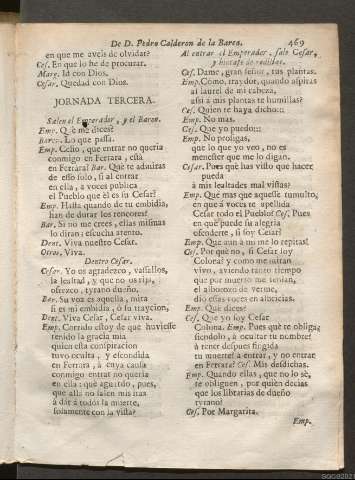 De D. Pedro Calderon de la Barca. 469
en que me aveis de olvidar?
Ces. En que lo he de procurar.
Marg. Id con Dios.
Cesar. Quedad con Dios.
JORNADA TERCERA.
Salen el Emperador, y el Baron.
Emp. Què me dices?
Baron. Lo que passa.
Emp. Celio, que entrar no queria
conmigo en Ferrara, està
en Ferrara? Bar. Què te admiras
de esso solo, si al entrar
en ella, a voces publica
el Pueblo que èl es tu Cesar?
Emp. Hasta quando de tu embidia,
han de durar los rencores?
Bar. Si no me crees, ellas mismas
lo diràn: escucha atento.
Dent. Viva nuestro Cesar.
Otros, Viva.
Dentro Cesar.
Cesar. Yo os agradezco, vassallos,
la lealtad, y que no os rija,
ofrezco, tyrano dueño.
Bar. Su voz es aquella, mira
si es mi embidia, ò su traycion.
Dent. Viva Cesar, Cesar viva.
Emp. Corrido estoy de que huviesse
tenido la gracia mia
quien esta conspiracion
tuvo oculta, y escondida
en Ferrara, à cuya causa
conmigo entrar no queria
en ella: què aguardo, pues,
que allà no salen mis iras
à dàr à todos la muerte,
solamente con la vista?
Al entrar el Emperador, sale Cesar,
y hincase de rodillas.
Ces. Dame, gran señor, tus plantas.
Emp. Còmo, traydor, quando aspiras
al laurel de mi cabeza,
assi à mis plantas te humillas?
Ces. Quien te haya dicho::
Emp. No mas.
Ces. Que yo puedo:::
Emp. No prosigas,
que lo que yo veo, no es
menester que me lo digan.
Cesar. Pues què has visto que hacer
pueda
à mis lealtades mal vistas?
Emp. Què mas que aquesse tumulto,
en que à voces te apellida
Cesar todo el Pueblo? Ces. Pues
en què puede su alegria
ofenderte, si soy Cesar?
Emp. Que aun à mi me lo repitas!
Ces. Por què no, si Cesar soy
Colona? y como me miran
vivo, aviendo tanto tiempo
que por muerto me tenian,
el alborozo de verme,
diò essas voces en albricias.
Emp. Què dices?
Ces. Que yo soy Cesar
Colona. Emp. Pues què te obliga,
siendolo, à ocultar tu nombre?
à tener despues fingida
tu muerte? à entrar, y no entrar
en Ferrara? Ces. Mis desdichas.
Emp. Quando ellas, que no lo sè,
te obliguen, por quièn decias
que los librarias de dueño
tyrano?
Ces. Por Margarita.
Emp.